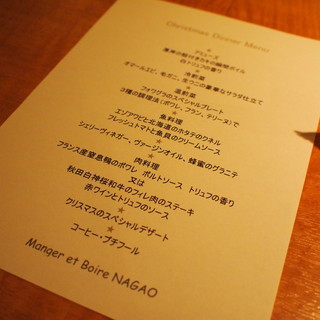 Christmas Dinner Menu
★
アミューズ
厚岸の殻付きカキの瞬間ボイル
白トリュフの香り
★
冷前菜
オマールエビ、毛ガニ、生ウニの豪華なサラダ仕立て
★
温前菜
フォワグラのスペシャルプレート
3種の調理法(ポワレ、フラン、テリーヌ)で
★
魚料理
エゾアワビと北海道のホタテのクネル
フレッシュトマトと魚貝のクリームソース
★
シェリーヴィネガー、ヴァージンオイル、蜂蜜のグラニテ
★
肉料理
フランス産窒息鴨のポワレ ポルトソース トリュフの香り
又は
秋田白神桜和牛のフィレ肉のステーキ
赤ワインとトリュフのソース
★
クリスマスのスペシャルデザート
★
コーヒー・プチフール
Manger et Boire NAGAO